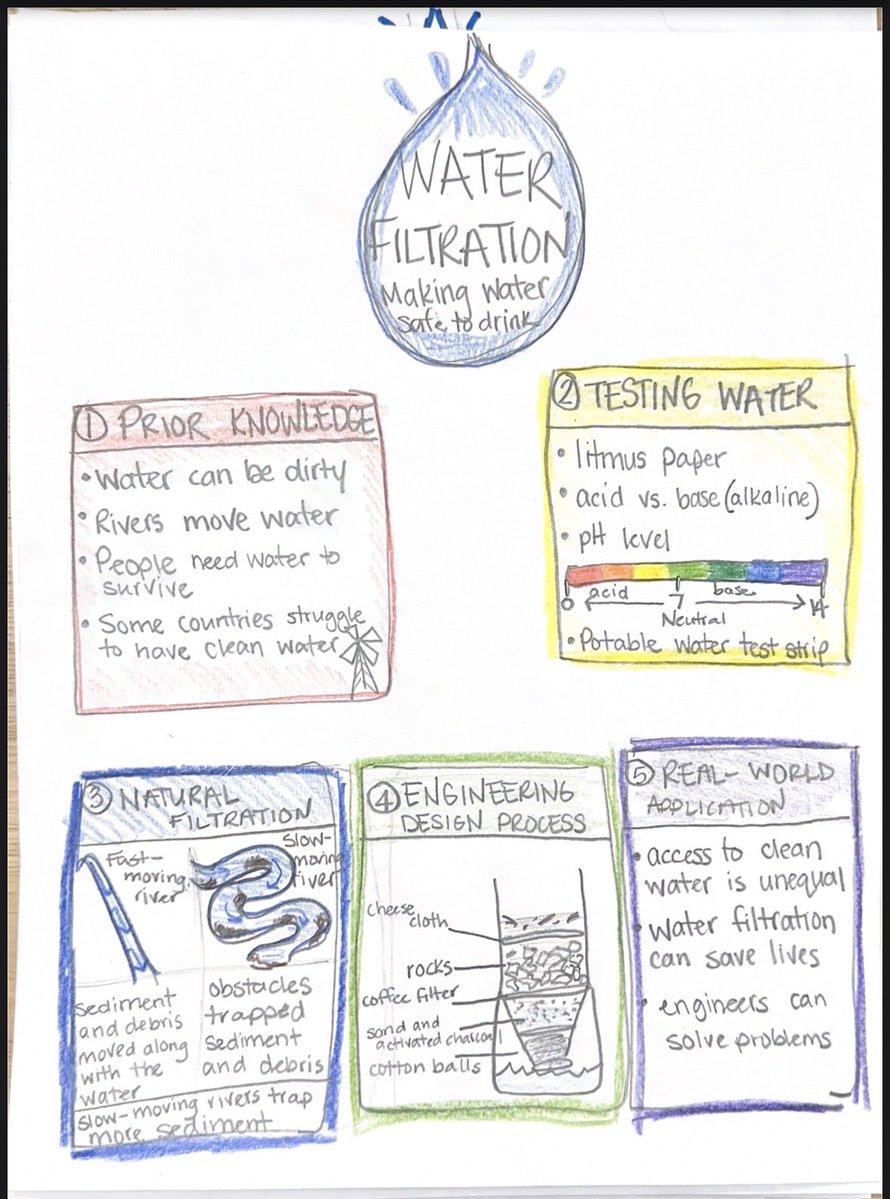 WATER
FILTRATION
Making water
safe to drink
① PRIOR KNOWLEDGE
• Water can be dirty
• Rivers move water
• People need water to
survive
• Some countries struggle
to have clean water
② TESTING WATER
• litmus paper
• acid vs. base (alkaline)
• pH level
acid base
0 7 14
Neutral
• Potable water test strip
③ NATURAL
FILTRATION
Fast-
moving
river
Slow-
moving
river
sediment
and debris
moved along
with the
water
obstacles
trapped
sediment
and debris
slow-moving rivers trap
more sediment
④ ENGINEERING
DESIGN PROCESS
cheese
cloth
rocks
coffee filter
sand and
activated charcoal
cotton balls
⑤ REAL-WORLD
APPLICATION
• access to clean
water is unequal
• water filtration
can save lives
• engineers can
solve problems